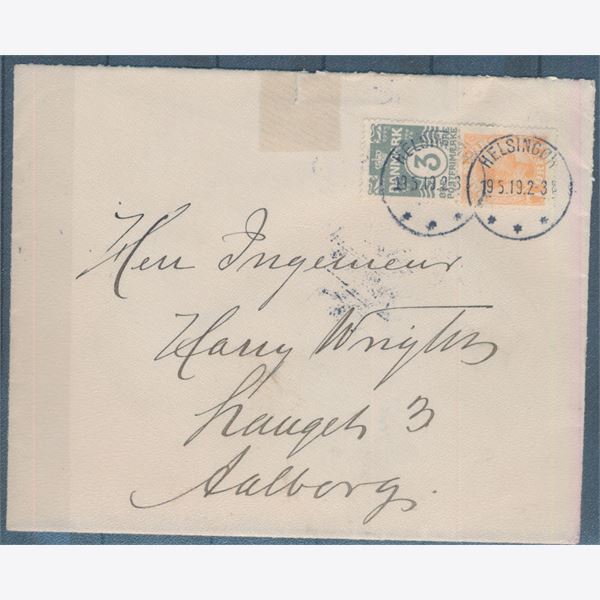 DANMARK
3
POSTFRIMÆRKE
HELSINGØR
19.5.19.2-3
HELSINGØR
19.5.19.2-3
Herr Ingenieur
Harry
3
Aalborg.